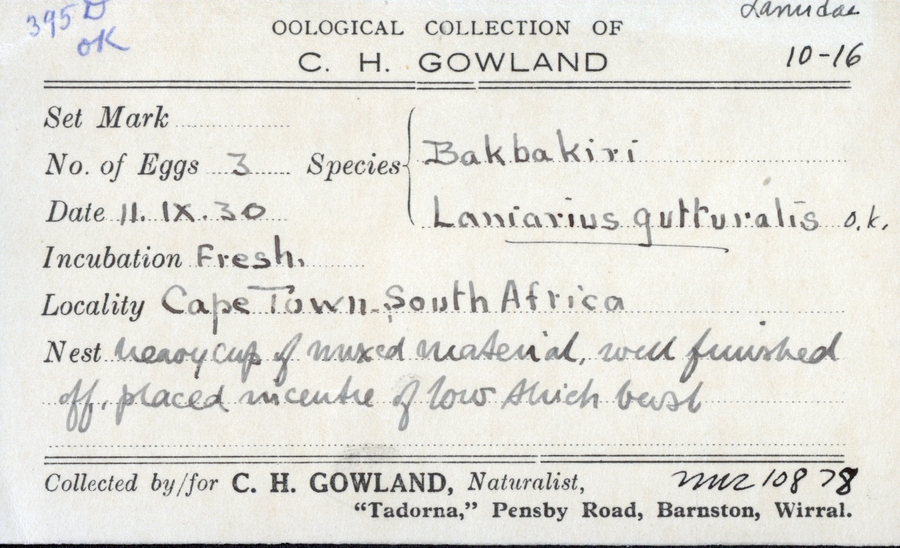 395 D
OK
Laniidae
10-16
OOLOGICAL COLLECTION OF
C. H. GOWLAND
Set Mark
No. of Eggs 3 Species
Bakbakiri
Date 11. IX. 30
Laniarius gutturalis o.k.
Incubation Fresh.
Locality Cape Town. South Africa
Nest heavy cup of mixed material, well finished
off, placed in centre of low thick bush
Collected by/for C. H. GOWLAND, Naturalist,
10878
"Tadorna," Pensby Road, Barnston, Wirral.